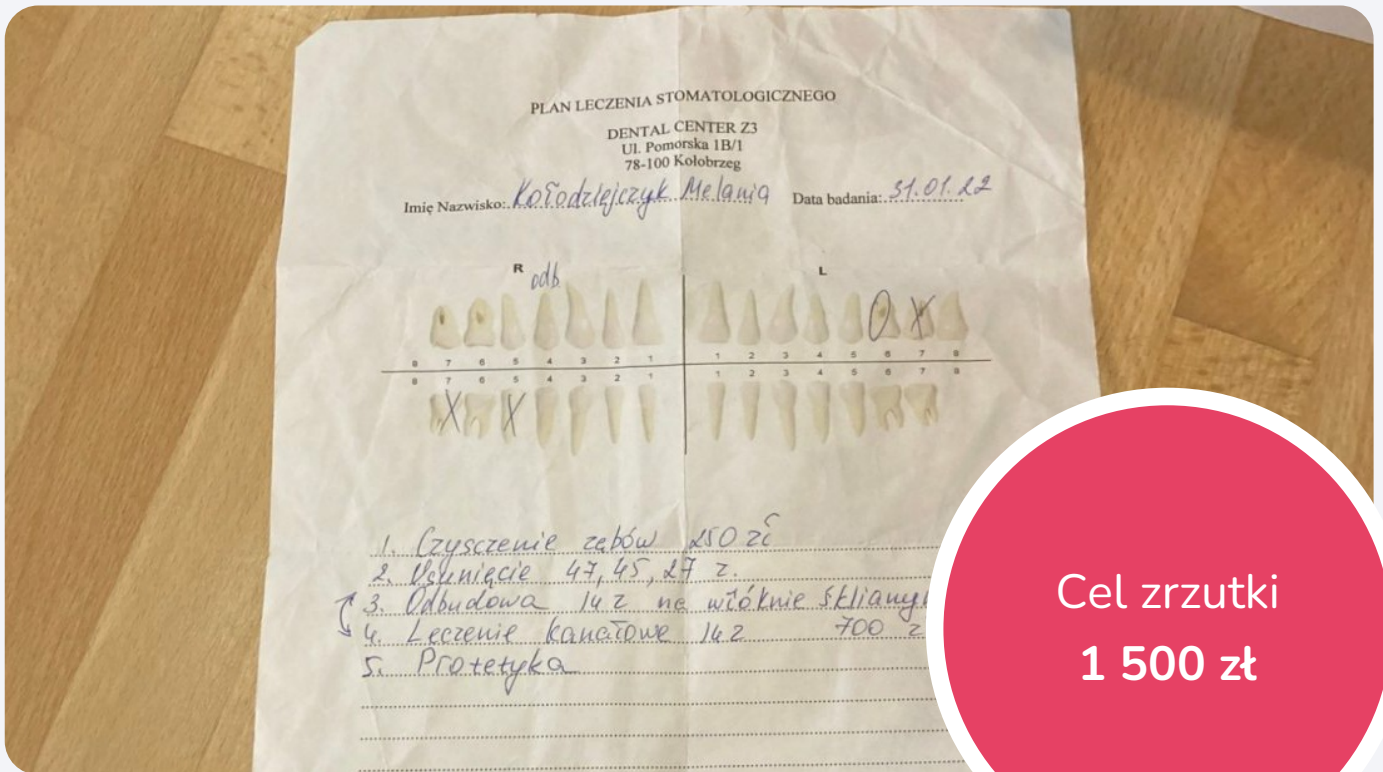 PLAN LECZENIA STOMATOLOGICZNEGO
DENTAL CENTER Z3
Ul. Pomorska 1B/1
78-100 Kołobrzeg
Imię Nazwisko: Kołodziejczyk Melania Data badania: 31.01.22
R odb. L
8 7 6 5 4 3 2 1 1 2 3 4 5 6 7 8
8 7 6 5 4 3 2 1 1 2 3 4 5 6 7 8
1. Czysczenie zębów 250 zł
2. Usunięcie 47, 45, 27 z.
3. Odbudowa 14 z na włóknie
4. Leczenie kanałowe 14 z 700 z
5. Protetyka
Cel zrzutki
1 500 zł